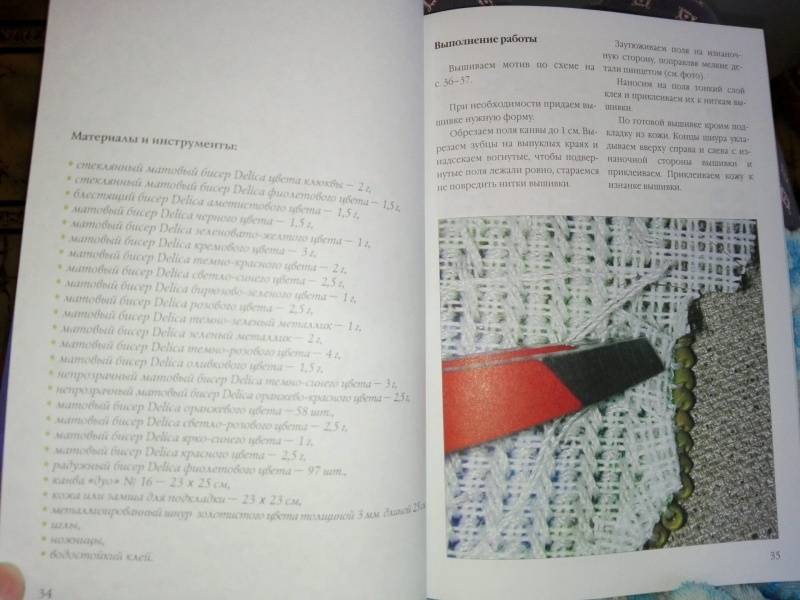 Материалы и инструменты:
• стеклянный матовый бисер Delica цвета клюквы — 2 г,
• стеклянный матовый бисер Delica фиолетового цвета — 1,5 г,
• блестящий бисер Delica аметистового цвета — 1,5 г,
• матовый бисер Delica черного цвета — 1,5 г,
• матовый бисер Delica зеленовато-желтого цвета — 1 г,
• матовый бисер Delica кремового цвета — 3 г,
• матовый бисер Delica темно-красного цвета — 2 г,
• матовый бисер Delica светло-синего цвета — 2,5 г,
• матовый бисер Delica бирюзово-зеленого цвета — 1 г,
• матовый бисер Delica розового цвета — 2,5 г,
• матовый бисер Delica темно-зеленый металлик — 1 г,
• матовый бисер Delica зеленый металлик — 2 г,
• матовый бисер Delica темно-розового цвета — 4 г,
• матовый бисер Delica оливкового цвета — 1,5 г,
• непрозрачный матовый бисер Delica темно-синего цвета — 3 г,
• непрозрачный матовый бисер Delica оранжево-красного цвета — 2,5 г,
• матовый бисер Delica оранжевого цвета — 58 шт.,
• матовый бисер Delica светло-розового цвета — 2,5 г,
• матовый бисер Delica ярко-синего цвета — 1 г,
• матовый бисер Delica красного цвета — 2,5 г,
• радужный бисер Delica фиолетового цвета — 97 шт.,
• канва «дуо» № 16 — 23 х 25 см,
• кожа или замша для подкладки — 23 х 23 см,
• металлизированный шнур золотистого цвета толщиной 3 мм длиной 25 см,
• иглы,
• ножницы,
• водостойкий клей.
34
Выполнение работы
Вышиваем мотив по схеме на
с. 36–37.
При необходимости придаем вы-
шивке нужную форму.
Обрезаем поля канвы до 1 см. Вы-
резаем зубцы на выпуклых краях и
надсекаем вогнутые, чтобы подвер-
нутые поля лежали ровно, стараемся
не повредить нитки вышивки.
Заутюживаем поля на изнаноч-
ную сторону, поправляя мелкие де-
тали пинцетом (см. фото).
Наносим на поля тонкий слой
клея и приклеиваем их к ниткам вы-
шивки.
По готовой вышивке кроим под-
кладку из кожи. Концы шнура укла-
дываем вверху справа и слева с из-
наночной стороны вышивки и
приклеиваем. Приклеиваем кожу к
изнанке вышивки.
35